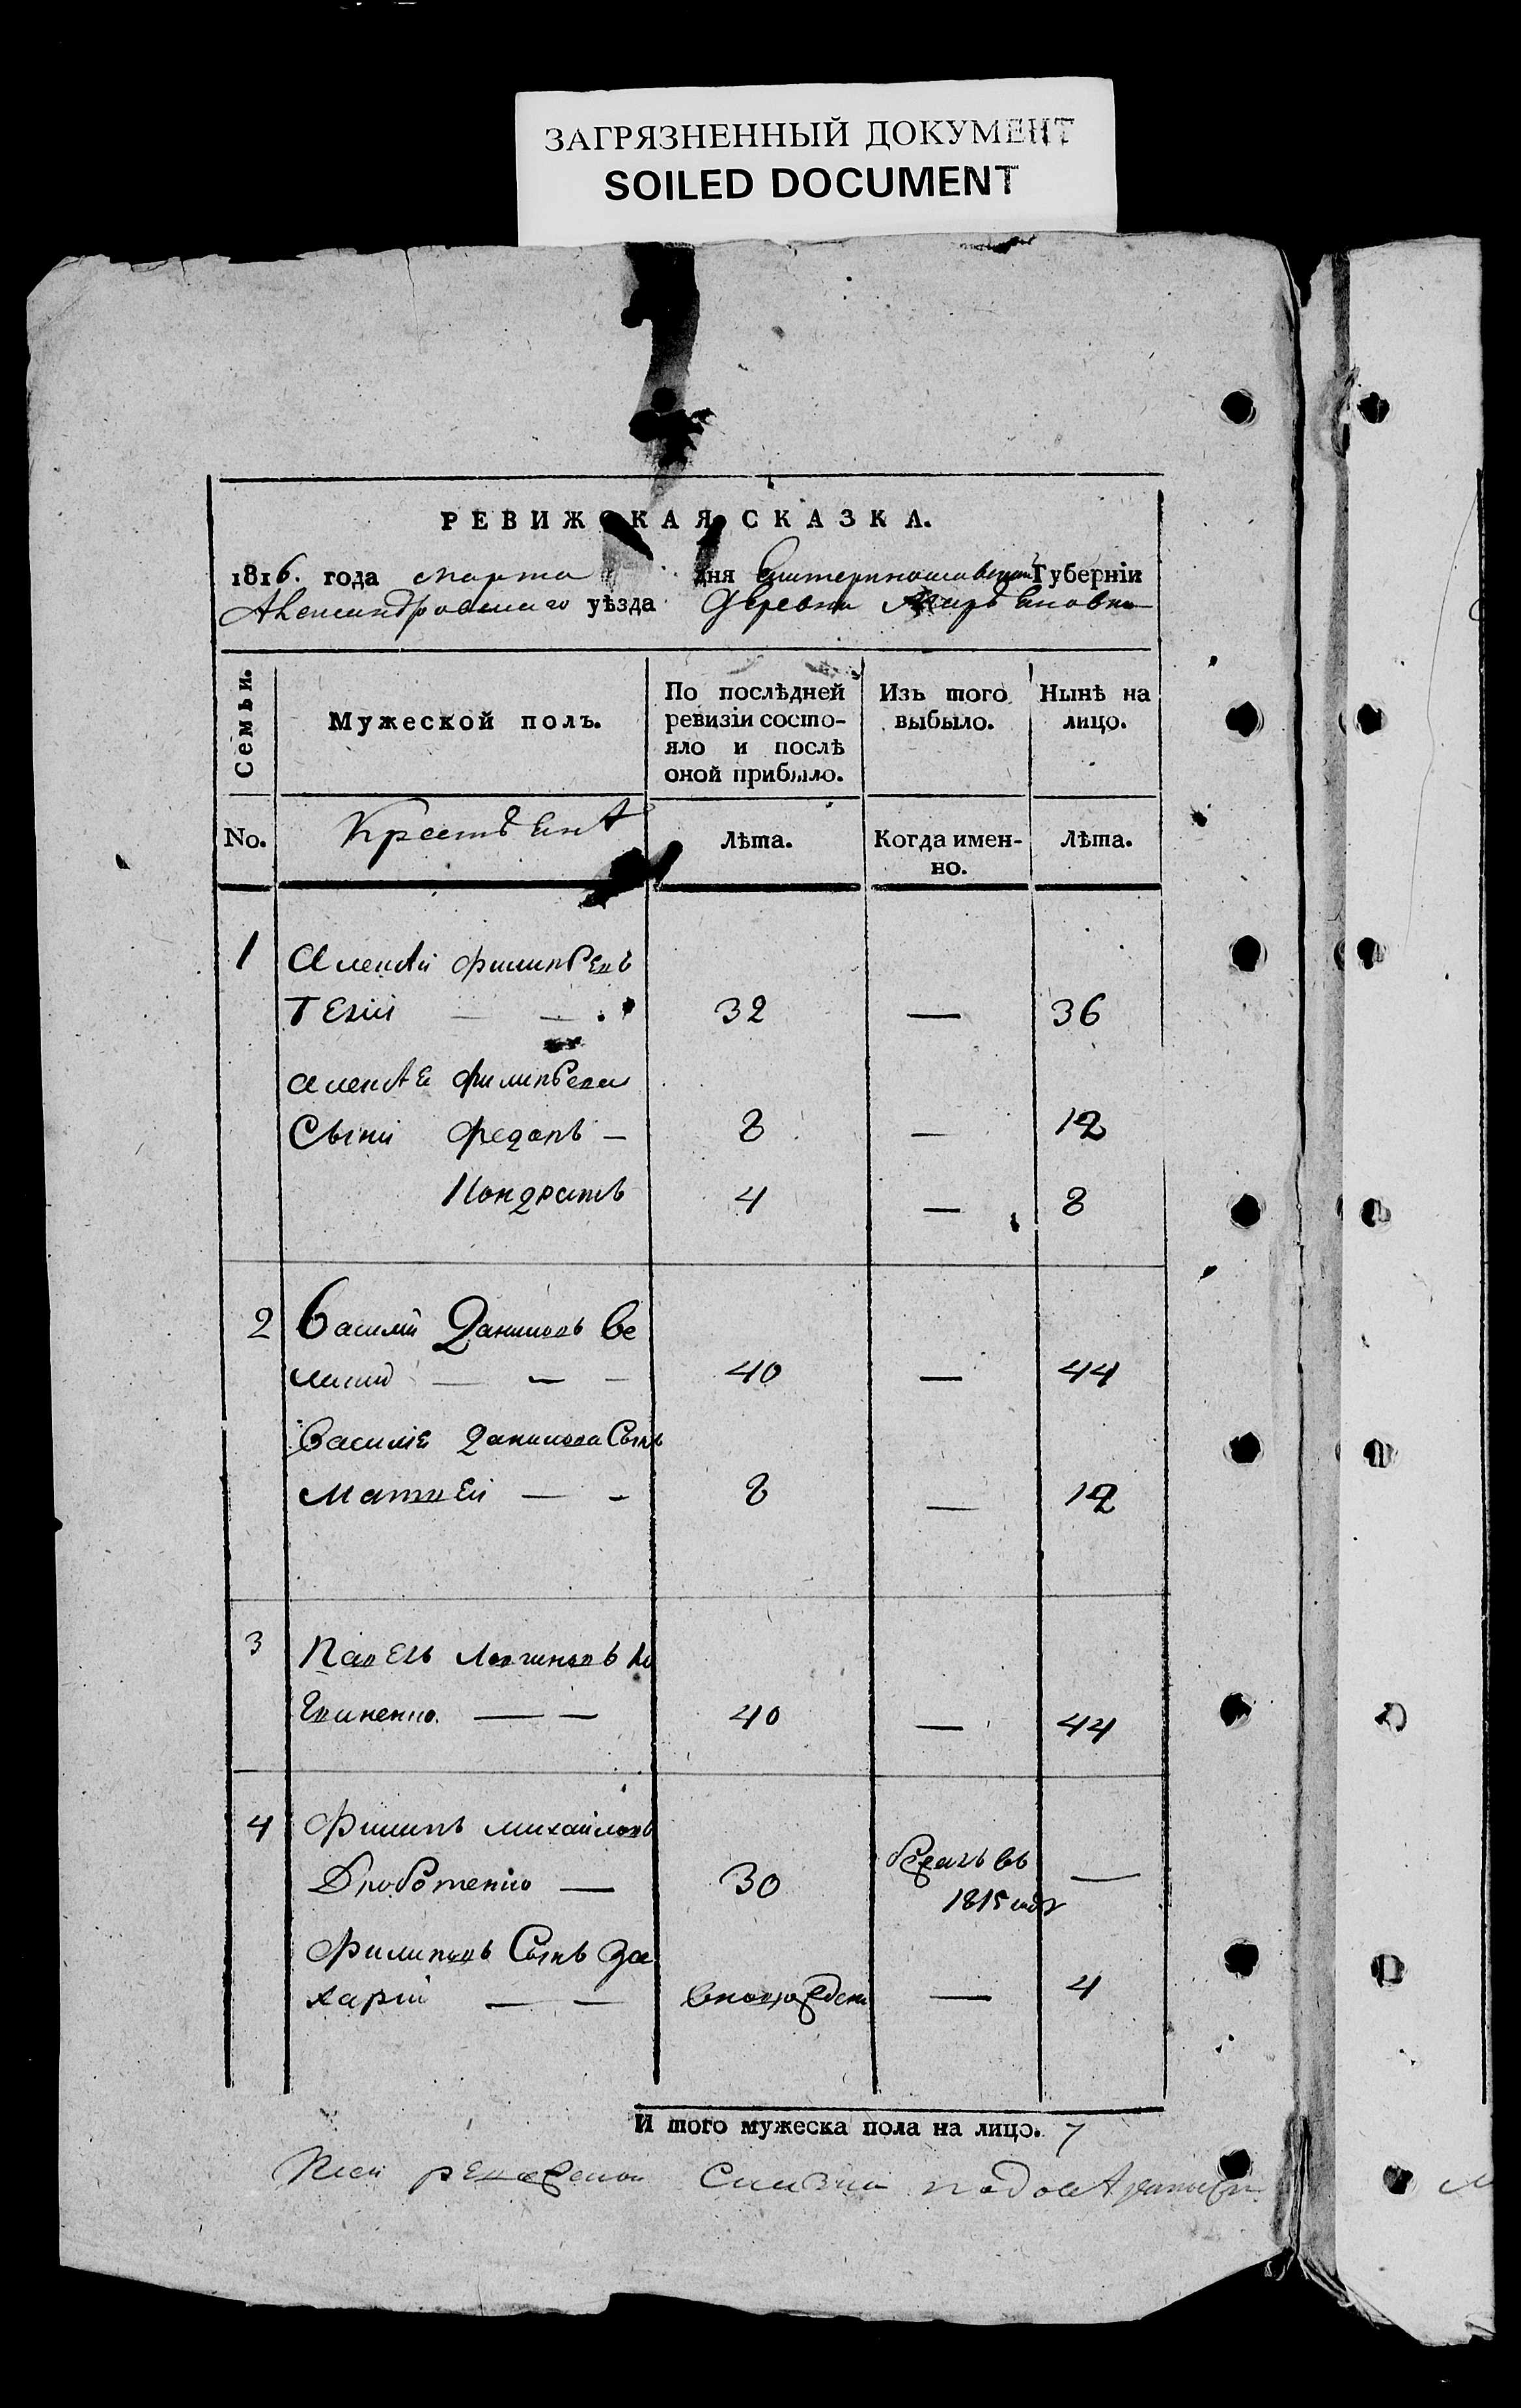 ЗАГРЯЗНЕННЫЙ ДОКУМЕНТ
SOILED DOCUMENT
РЕВИЖСКАЯ СКАЗКА.
1816. года марта дня Екатеринославской Губерніи
Александровскаго уѣзда Деревни
Семьи.
Мужеской полъ.
По послѣдней ревизіи состо-
яло и послѣ
оной прибыло.
Изъ того выбыло.
Нынѣ на лицо.
No.
Крестьянѣ
Лѣта.
Когда имен-
но.
Лѣта.
1 Алексѣй Филиповъ
32 — 36
Алексѣя Филипова
Сыни Федоръ — 8 — 12
Кондратъ 4 — 8
2 Василий Даниловъ Ве
ликий — — — 40 — 44
Василія Данилова Сынъ
Матвей — — 8 — 12
3 Павелъ Логиновъ
40 — 44
4 Филипъ Михайловъ
Дроботенко — 30 бежалъ въ 1815 году —
Филиповъ Сынъ За
харій — — новорожден — 4
И того мужеска пола на лицо. 7
К сей ревижской Сказки